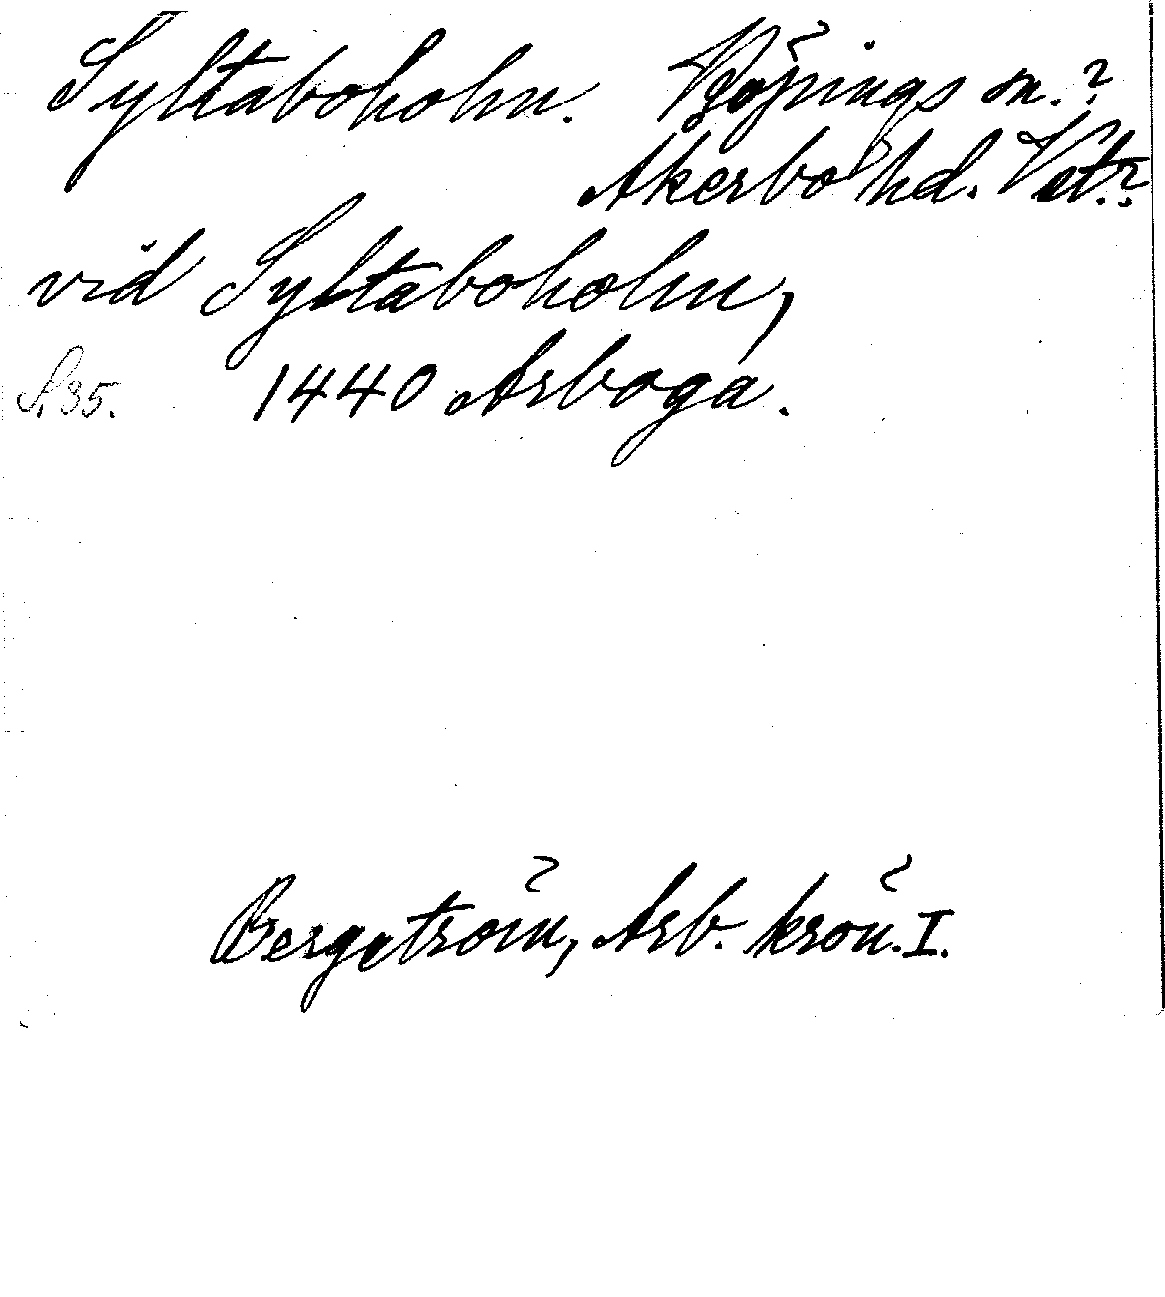 Syltaboholm. Köpings sn.?
Åkerbo hd. Vstm?
vid Syltaboholm,
S.35. 1440 Arboga.
Bergström, Arb. krön. I.